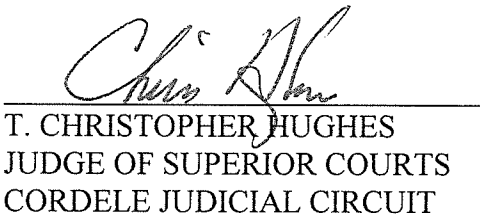 Chris Hughes
T. CHRISTOPHER HUGHES
JUDGE OF SUPERIOR COURTS
CORDELE JUDICIAL CIRCUIT